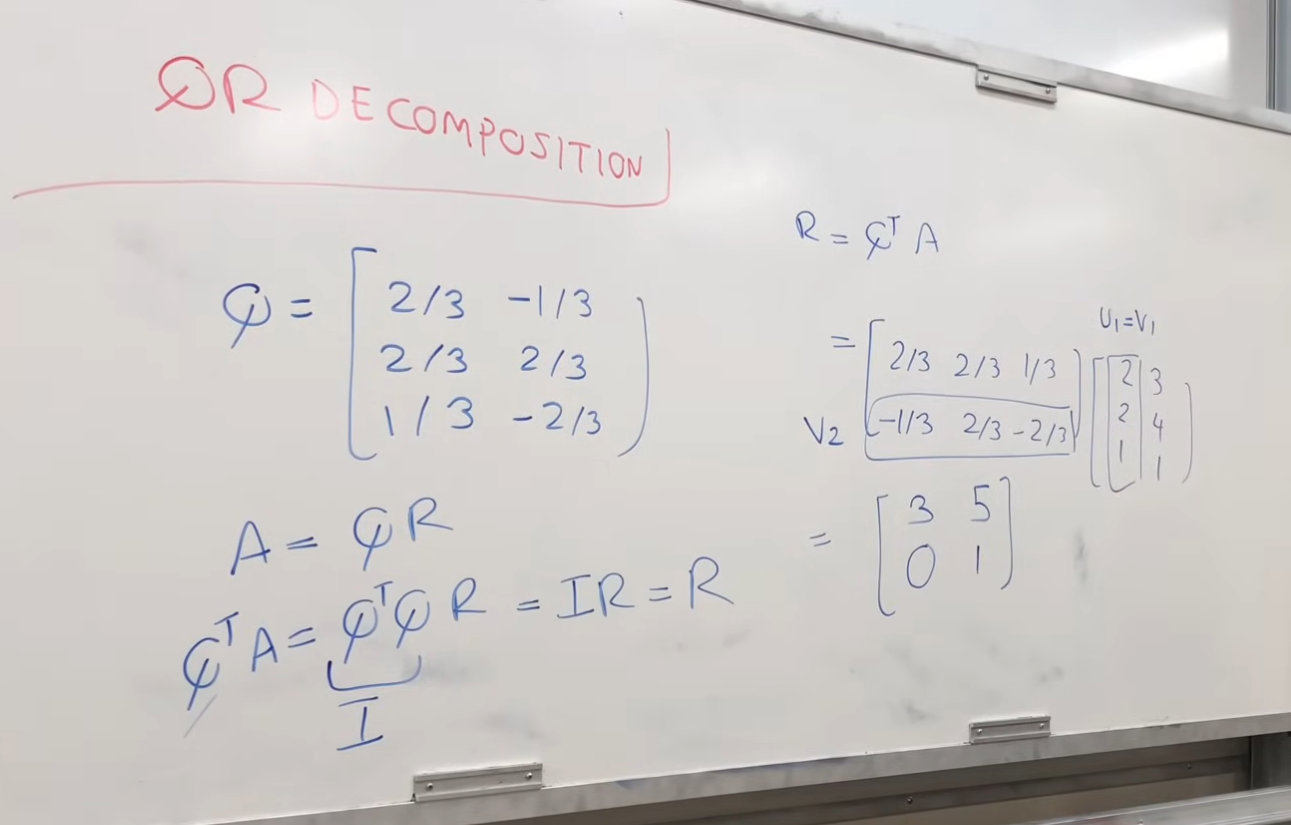 QR DECOMPOSITION
Q = [ 2/3 -1/3
2/3 2/3
1/3 -2/3 ]
A = QR
Qᵀ A = QᵀQ R = IR = R
I
R = Qᵀ A
U₁=V₁
= [ 2/3 2/3 1/3 ] [ 2 3
V2 -1/3 2/3 -2/3 2 4
1 1 ]
= [ 3 5
0 1 ]